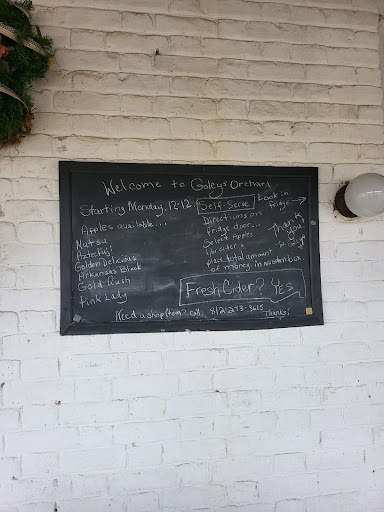 Welcome to Goleys Orchard
Starting Monday, 12-12.
Self-Serve
Look in
fridge →
Apples available....
Mutsu
Aztec Fuji
Golden Delicious
Arkansas Black
Gold Rush
Pink Lady
Directions on
fridge door...
Select Apples
&/or cider &
place total amount
of money in wooden box.
Thank
you!
Fresh Cider? Yes
Need a shop item? call 812-273-3615
Thanks!